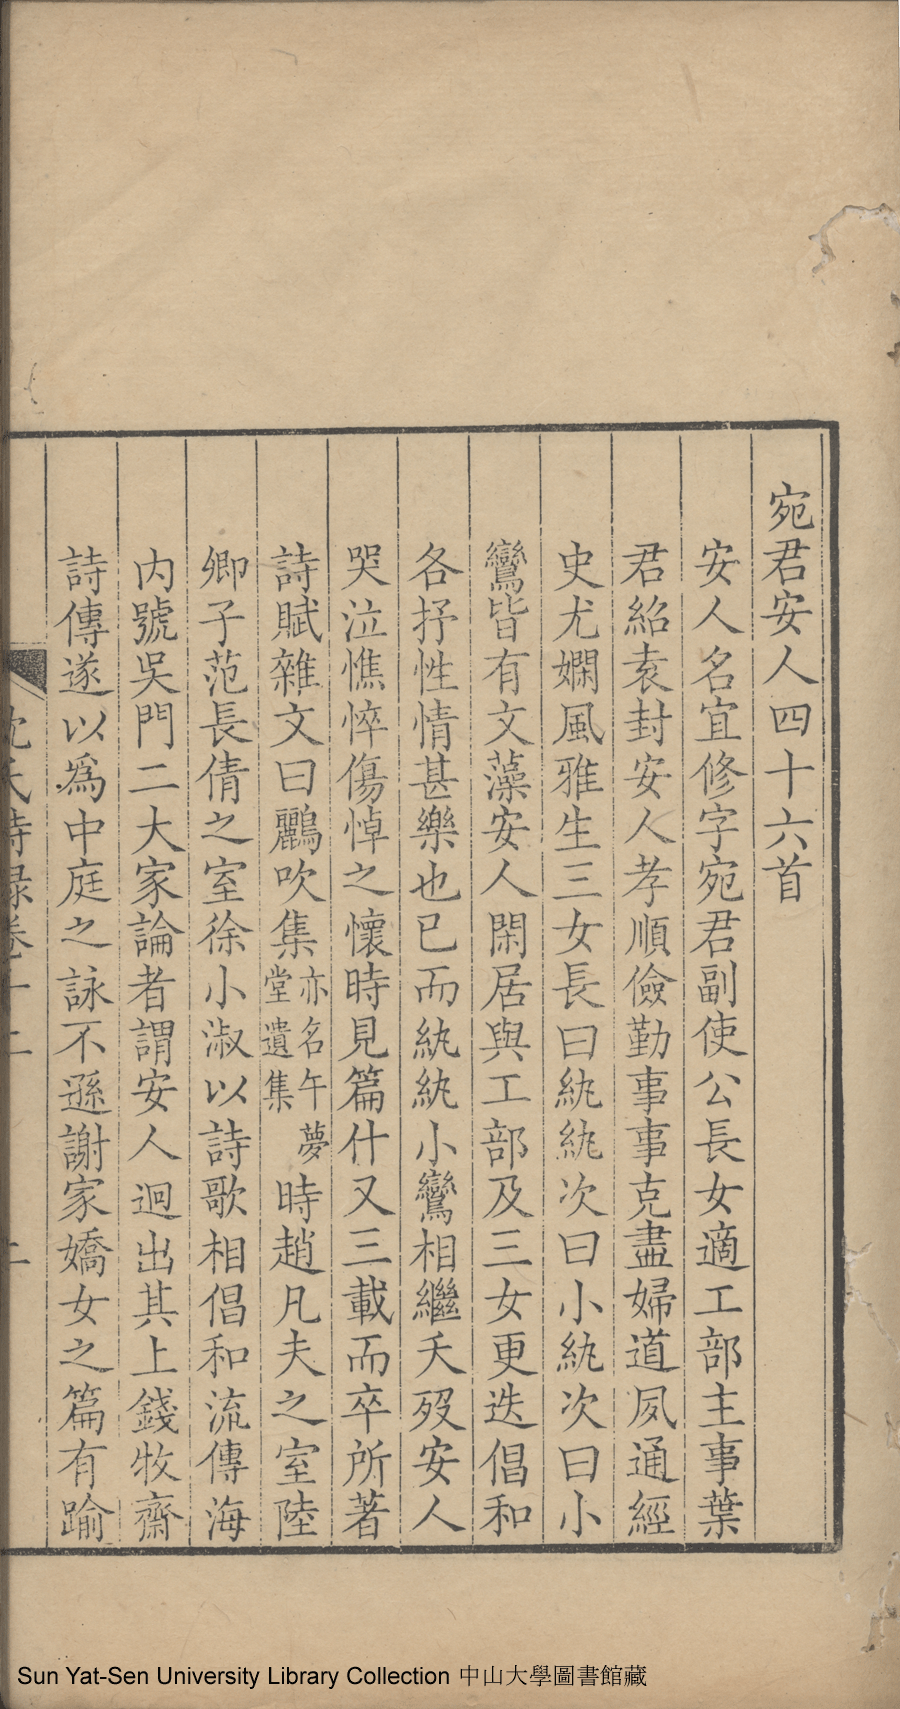 宛君安人四十六首
安人名宜修字宛君副使公長女適工部主事葉
君紹袁封安人孝順儉勤事事克盡婦道夙通經
史尤嫻風雅生三女長曰紈紈次曰小紈次曰小
鸞皆有文藻安人閑居與工部及三女更迭倡和
各抒性情甚樂也已而紈紈小鸞相繼夭歿安人
哭泣憔悴傷悼之懷時見篇什又三載而卒所著
詩賦雜文曰鸝吹集亦名午夢堂遺集時趙凡夫之室陸
卿子范長倩之室徐小淑以詩歌相倡和流傳海
内號吳門二大家論者謂安人迥出其上錢牧齋
詩傳遂以爲中庭之詠不遜謝家嬌女之篇有踰
沈氏詩錄卷十二
Sun Yat-Sen University Library Collection 中山大學圖書館藏